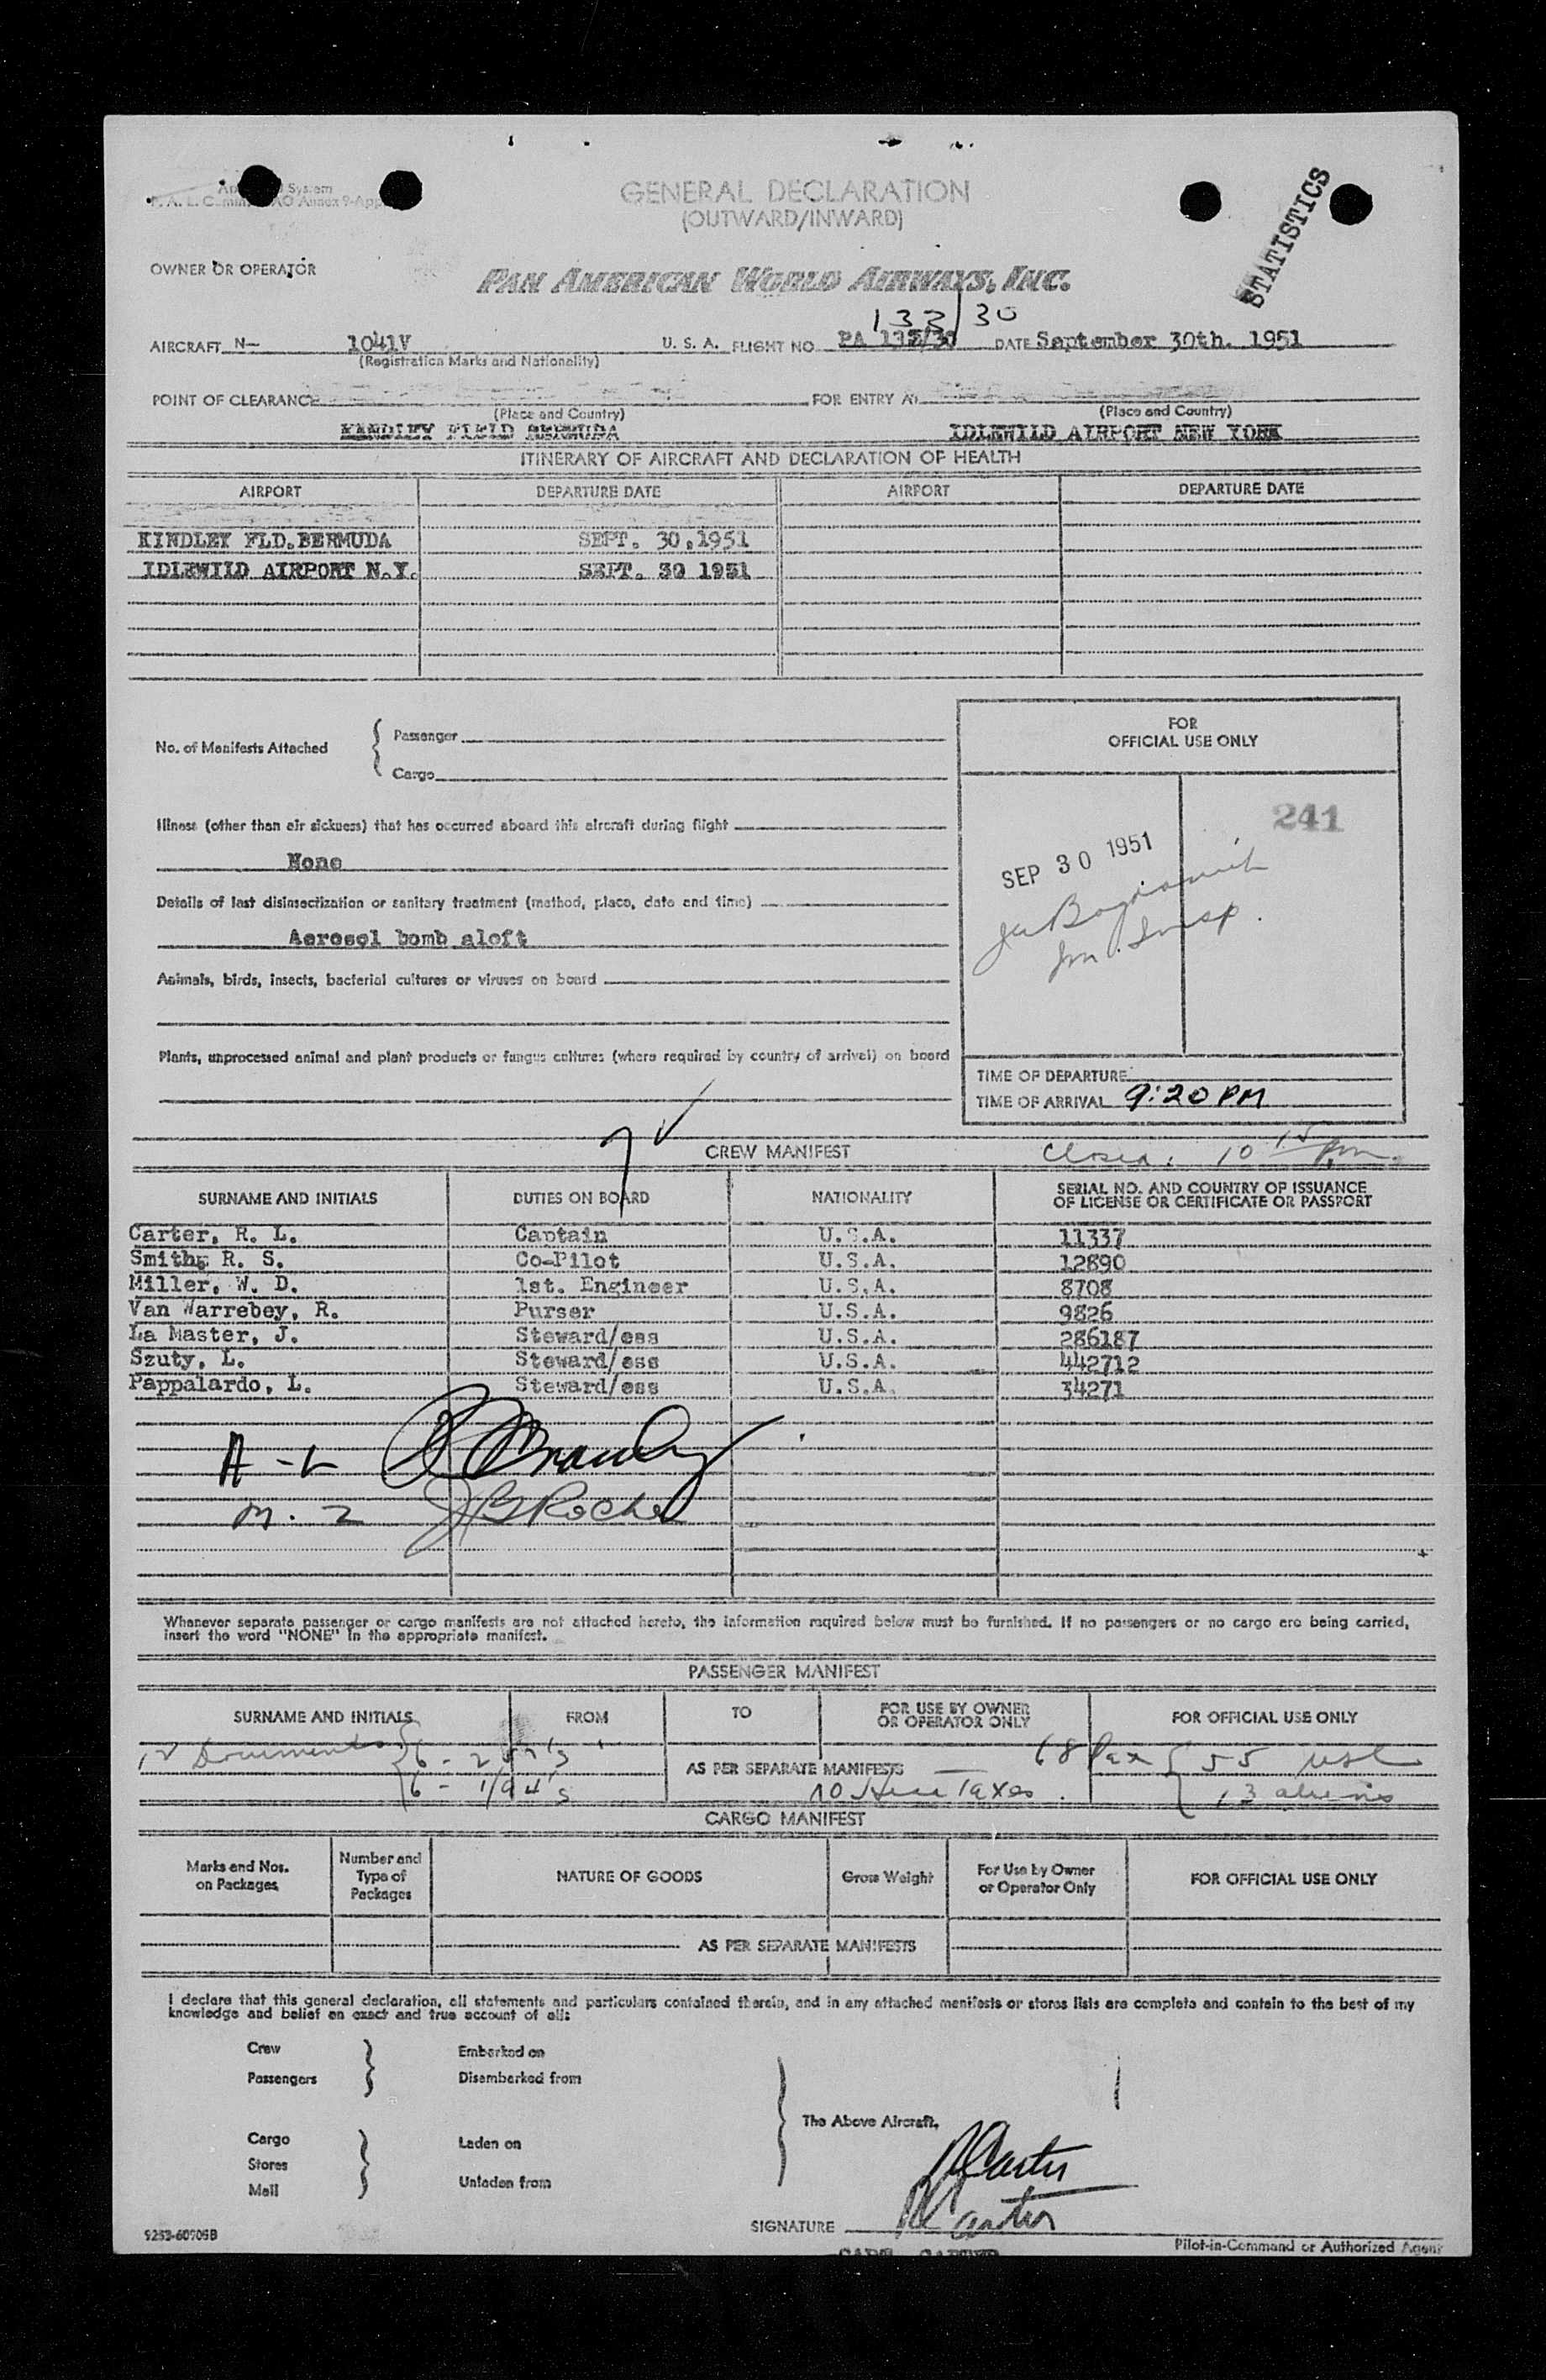 System
GENERAL DECLARATION
(OUTWARD/INWARD)
STATISTICS
OWNER OR OPERATOR
PAN AMERICAN WORLD AIRWAYS, INC.
133/30
AIRCRAFT N— 1041V U. S. A. FLIGHT NO PA 132/30 DATE September 30th. 1951
(Registration Marks and Nationality)
POINT OF CLEARANCE FOR ENTRY AT
(Place and Country) (Place and Country)
KINDLEY FIELD BERMUDA IDLEWILD AIRPORT NEW YORK
ITINERARY OF AIRCRAFT AND DECLARATION OF HEALTH
AIRPORT DEPARTURE DATE AIRPORT DEPARTURE DATE
KINDLEY FLD.BERMUDA SEPT. 30,1951
IDLEWILD AIRPORT N.Y. SEPT. 30 1951
No. of Manifests Attached
Passenger
Cargo
FOR
OFFICIAL USE ONLY
241
SEP 30 1951
Illness (other than air sickness) that has occurred aboard this aircraft during flight
None
Details of last disinsectization or sanitary treatment (method, place, date and time)
Aerosol bomb aloft
Imm. Insp.
Animals, birds, insects, bacterial cultures or viruses on board
Plants, unprocessed animal and plant products or fungus cultures (where required by country of arrival) on board
TIME OF DEPARTURE
TIME OF ARRIVAL 9:20 PM
7 ✓
CREW MANIFEST
Closed: 10 15 pm.
SURNAME AND INITIALS DUTIES ON BOARD NATIONALITY SERIAL NO. AND COUNTRY OF ISSUANCE
OF LICENSE OR CERTIFICATE OR PASSPORT
Carter, R. L. Captain U.S.A. 11337
Smith, R. S. Co-Pilot U.S.A. 12890
Miller, W. D. 1st. Engineer U.S.A. 8708
Van Warrebey, R. Purser U.S.A. 9826
La Master, J. Steward/ess U.S.A. 286187
Szuty, L. Steward/ess U.S.A. 442712
Pappalardo, L. Steward/ess U.S.A. 34271
M. 2 JB Roche
Whenever separate passenger or cargo manifests are not attached hereto, the information required below must be furnished. If no passengers or no cargo are being carried,
insert the word "NONE" in the appropriate manifest.
PASSENGER MANIFEST
SURNAME AND INITIALS FROM TO FOR USE BY OWNER
OR OPERATOR ONLY FOR OFFICIAL USE ONLY
12 Documents { 6 - 257's 68 Pax { 55 USC
AS PER SEPARATE MANIFESTS
6 - I/94's no Head Taxes 13 aliens
CARGO MANIFEST
Marks and Nos.
on Packages
Number and
Type of
Packages
NATURE OF GOODS
Gross Weight
For Use by Owner
or Operator Only
FOR OFFICIAL USE ONLY
AS PER SEPARATE MANIFESTS
I declare that this general declaration, all statements and particulars contained therein, and in any attached manifests or stores lists are complete and contain to the best of my
knowledge and belief an exact and true account of all:
Crew Embarked on
Passengers Disembarked from
The Above Aircraft,
Cargo Laden on
Stores
Mail Unladen from
R Carter
SIGNATURE R Carter
9253-60905B
Pilot-in-Command or Authorized Agent
CAPT. CARTER